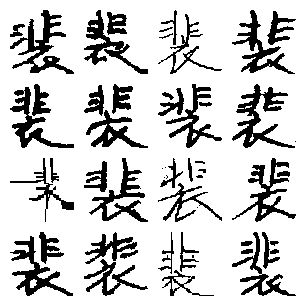 裴裴裴裴
裴裴裴裴
裴裴裴裴
裴裴裴裴